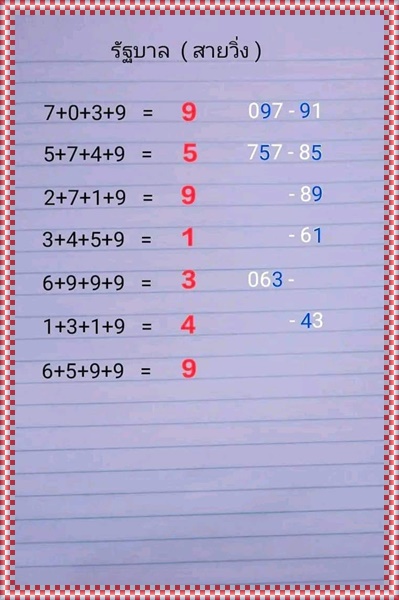 รัฐบาล (สายวิ่ง)
7+0+3+9 = 9 097 - 91
5+7+4+9 = 5 757 - 85
2+7+1+9 = 9 - 89
3+4+5+9 = 1 - 61
6+9+9+9 = 3 063 -
1+3+1+9 = 4 - 43
6+5+9+9 = 9